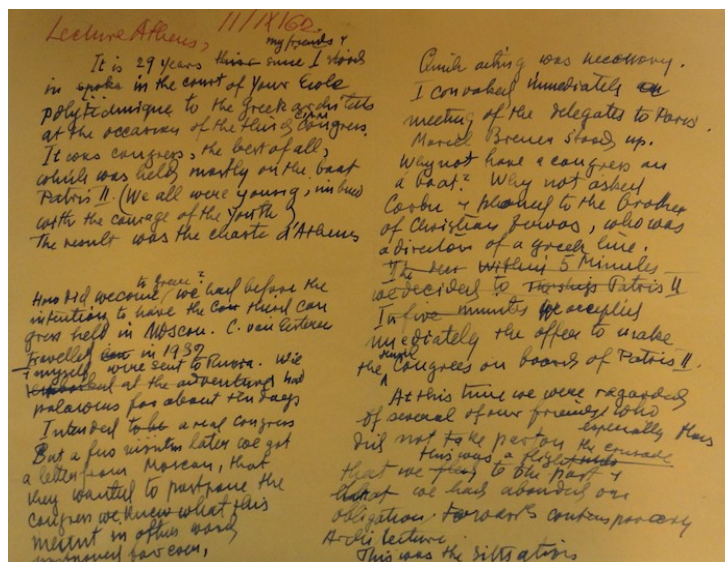 Lecture Athens, 11/IX/62
my friends &
It is 29 years this since I stood
in spoke in the court of your Ecole
polytechnique to the greek architects
at the occasion of the third CIAM Congress.
It was congress, the best of all,
which was held mostly on the boat
Patris II. (We all were young, imbued
with the courage of the youth)
The result was the charte d'Athenes
to Greece?
How did we come, we had before the
intention to have the con third con
gress held in Moscou. C. van Eesteren
travelled in 1932
& myself were sent to Russia. We
at the adventure had
palavers for about ten days
Intended to be a real congress
But a few months later we got
a letter from Moscou, that
they wanted to postpone the
congress we knew what this
meant in other words
postponed for ever,
Quick acting was necessary.
I convoked immediately a
meeting of the delegates to Paris.
Marcel Breuer stood up.
Why not have a congress on
a boat? Why not asked
Corbu & phoned to the brother
of Christian Zervos, who was
a director of a greek line.
The Within 5 Minutes
we decided to Patris II
In five minutes we accepted
imediately the offer to make
the Congrees on boards of Patris II.
At this time we were regarded
of several of our friends who
especially
did not take part on the crusade
this was a flight
that we to the past &
that we had abanded our
obligation towards contemporary
Architecture.
This was the situation